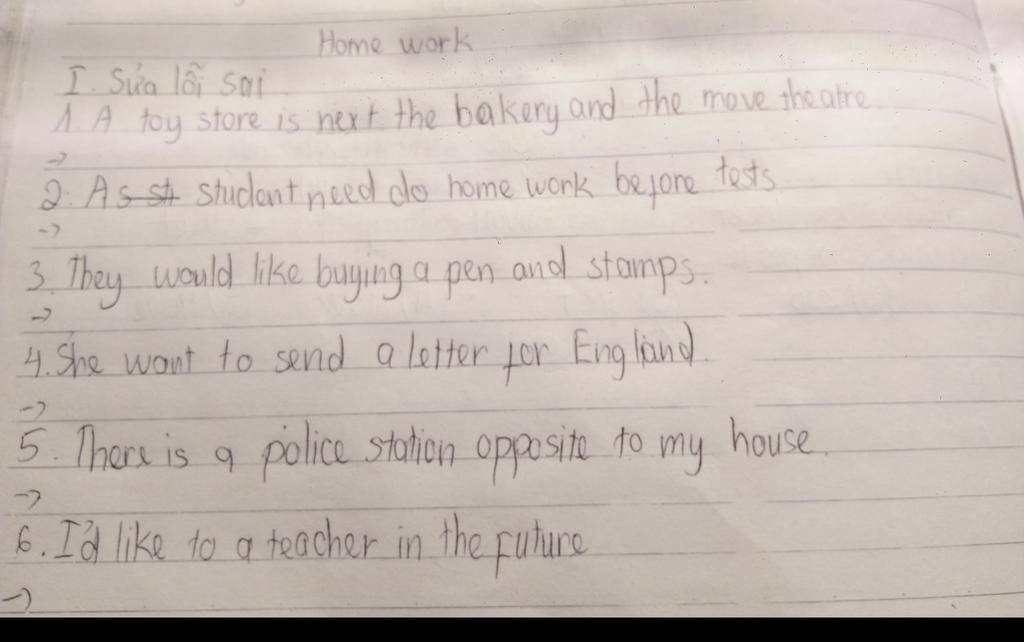 Home work
I. Sửa lỗi sai
1. A toy store is next the bakery and the move theatre.
->
2. As st student need do home work before tests
->
3. They would like buying a pen and stamps.
->
4. She want to send a letter for England.
->
5. There is a police station opposite to my house.
->
6. I'd like to a teacher in the future
->